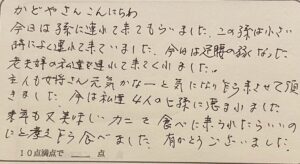 かどやさん こんにちわ
今日は孫に連れて来てもらいました。この孫は小さい
時によく連れて来ていました。今日は足腰の弱くなった
老夫婦の私達を連れて来てくれました。
主人も女将さん元気かなーと気になり寄らせて頂
きました。今は私達4人のヒ孫に恵まれました
来年も又美味しいカニを食べに来られたらいいの
にと考え乍ら食べました。有がとうございました。
10点満点で 点